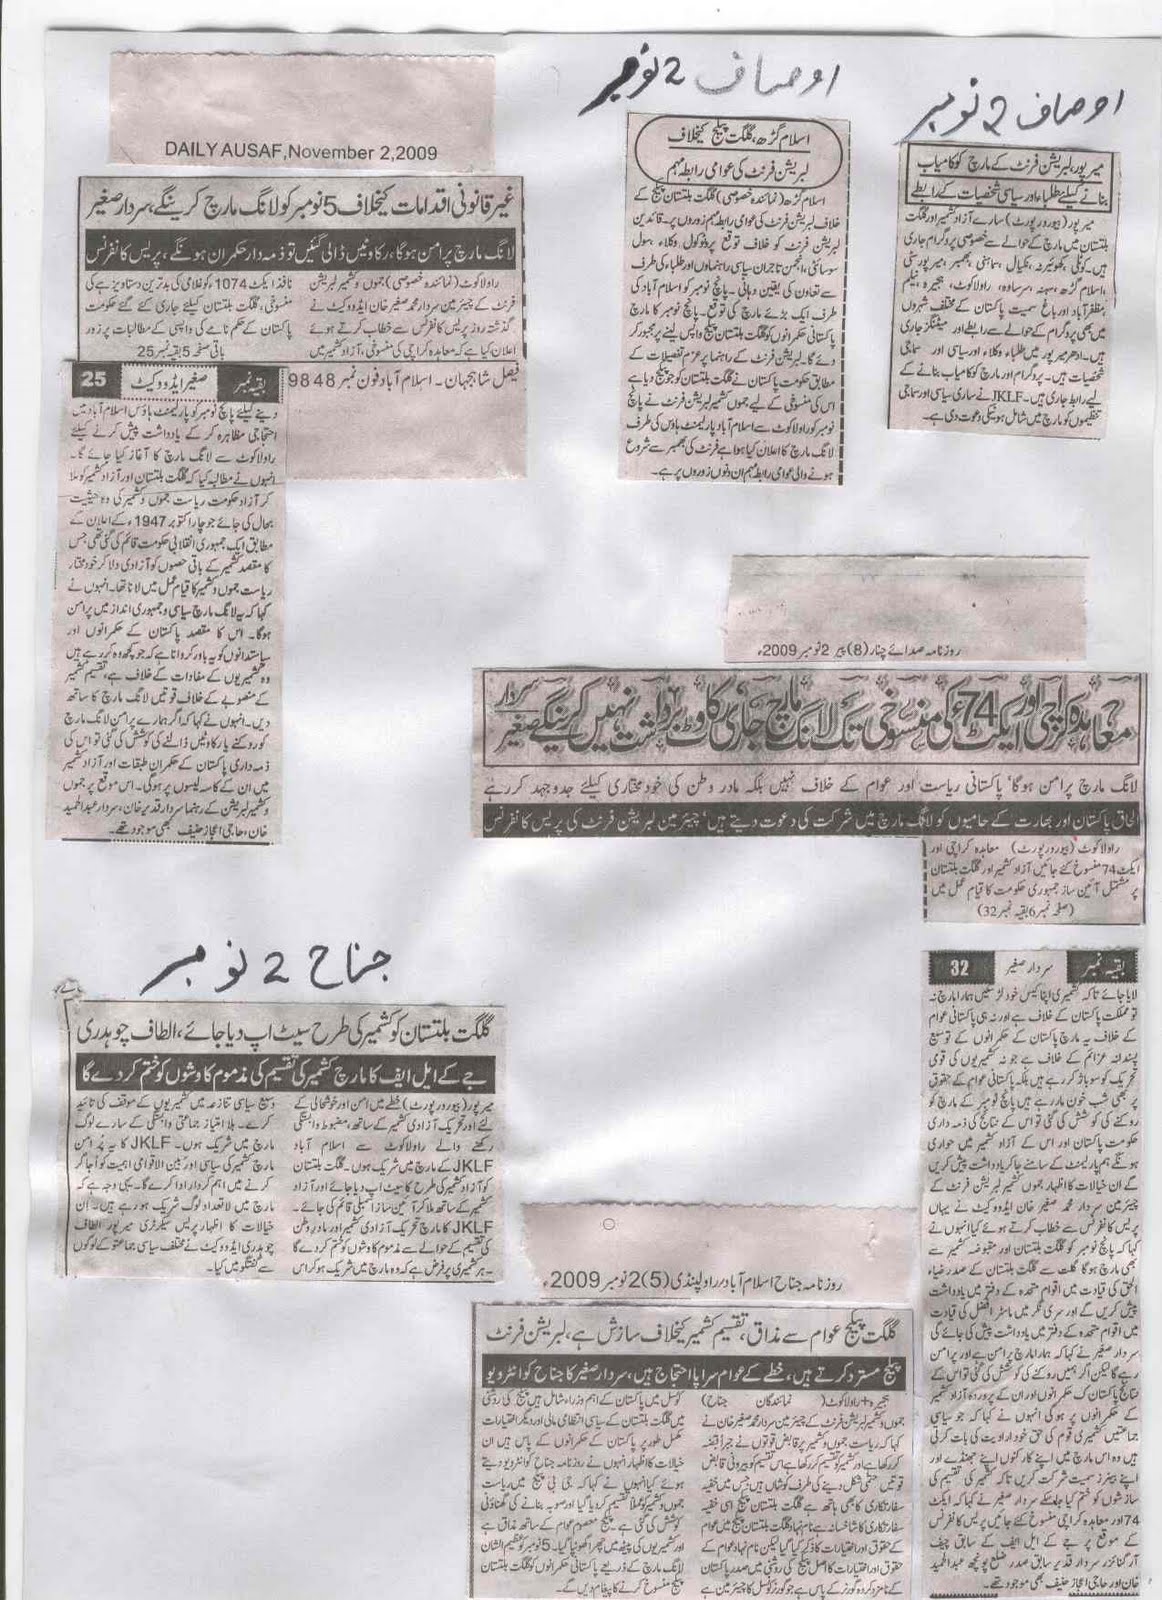 اوصاف 2 نومبر
اوصاف 2 نومبر
DAILY AUSAF,November 2,2009
غیر قانونی اقدامات کیخلاف 5 نومبر کو لانگ مارچ کرینگے، سردار صغیر
لانگ مارچ پرامن ہوگا، رکاوٹیں ڈالی گئیں تو ذمہ دار حکمران ہونگے، پریس کانفرنس
راولاکوٹ (نمائندہ خصوصی) جموں و کشمیر لبریشن
فرنٹ کے چیئرمین سردار محمد صغیر خان ایڈووکیٹ نے
گذشتہ روز پریس کانفرنس سے خطاب کرتے ہوئے
اعلان کیا ہے کہ معاہدہ کراچی کی منسوخی، آزاد کشمیر میں
نافذ ایکٹ 1074 کو غلامی کی بدترین دستاویز ہے کی
منسوخی، گلگت بلتستان کیلئے جاری کئے گئے حکومت
پاکستان کے حکم نامے کی واپسی کے مطالبات پر زور
باقی صفحہ 5 بقیہ نمبر 25
فیصل شاہجہان ۔ اسلام آباد فون نمبر 9848
بقیہ نمبر صغیر ایڈووکیٹ 25
دینے کیلئے پانچ نومبر کو پارلیمنٹ ہاؤس اسلام آباد میں
احتجاجی مظاہرہ کر کے یادداشت پیش کرنے کیلئے
راولاکوٹ سے لانگ مارچ کا آغاز کیا جائے گا۔
انہوں نے مطالبہ کیا کہ گلگت بلتستان اور آزاد کشمیر کو ملا
کر آزاد حکومت ریاست جموں و کشمیر کی وہ حیثیت
بحال کی جائے جو چار اکتوبر 1947ء کے اعلان کے
مطابق ایک جمہوری انقلابی حکومت قائم کی گئی تھی جس
کا مقصد کشمیر کے باقی حصوں کو آزادی دلا کر خودمختار
ریاست جموں و کشمیر کا قیام عمل میں لانا تھا۔ انہوں نے
کہا کہ یہ لانگ مارچ سیاسی و جمہوری انداز میں پرامن
ہوگا۔ اس کا مقصد پاکستان کے حکمرانوں اور
سیاستدانوں کو یہ باور کروانا ہے کہ جو کچھ وہ کر رہے ہیں
وہ کشمیریوں کے مفادات کے خلاف ہے، تقسیم کشمیر
کے منصوبے کے خلاف قوتیں لانگ مارچ کا ساتھ
دیں۔ انہوں نے کہا کہ اگر ہمارے پرامن لانگ مارچ
کو روکنے یا رکاوٹیں ڈالنے کی کوشش کی گئی تو اس کی
ذمہ داری پاکستان کے حکمران طبقات اور آزاد کشمیر
میں ان کے کاسہ لیسوں پر ہوگی۔ اس موقع پر جموں
و کشمیر لبریشن کے رہنما سردار قدیر خان، سردار عبدالحمید
خان، حاجی اعجاز حنیف بھی موجود تھے۔
اسلام گڑھ، گلگت پیکج کیخلاف
لبریشن فرنٹ کی عوامی رابطہ مہم
اسلام گڑھ (نمائندہ خصوصی) گلگت بلتستان پیکج کے
خلاف لبریشن فرنٹ کی عوامی رابطہ مہم زوروں پر قائدین
لبریشن فرنٹ کو خلاف توقع پروٹوکول وکلاء، سول
سوسائٹی، انجمن تاجران سیاسی راہنماؤں اور طلباء کی طرف
سے تعاون کی یقین دہانی۔ پانچ نومبر کو اسلام آباد کی
طرف ایک بڑے مارچ کی توقع۔ پانچ نومبر کا مارچ
پاکستانی حکمرانوں کو گلگت بلتستان پیکج واپس لینے پر مجبور کر
دے گا۔ لبریشن فرنٹ کے راہنما پرعزم تفصیلات کے
مطابق حکومت پاکستان نے گلگت بلتستان کو جو پیکج دیا ہے
اس کی منسوخی کے لیے جموں کشمیر لبریشن فرنٹ نے پانچ
نومبر کو راولاکوٹ سے اسلام آباد پارلیمنٹ ہاؤس کی طرف
لانگ مارچ کا اعلان کیا ہوا ہے فرنٹ کی بھمبر سے شروع
ہونے والی عوامی رابطہ مہم ان دنوں زوروں پر ہے۔
میرپور، لبریشن فرنٹ کے مارچ کو کامیاب
بنانے کیلئے طلباء اور سیاسی شخصیات کے رابطے
میرپور (بیورو رپورٹ) سارے آزاد کشمیر اور گلگت
بلتستان میں مارچ کے حوالے سے خصوصی پروگرام جاری
ہیں۔ کوٹلی، کھوئیرٹہ، نکیال، سماہنی، بھمبر، میرپور سٹی
اسلام گڑھ، سہنسہ، سرساوہ، راولاکوٹ، ہجیرہ، نیلم
مظفرآباد اور باغ سمیت پاکستان کے مختلف شہروں
میں بھی پروگرام کے حوالے سے رابطے اور میٹنگز جاری
ہیں۔ ادھر میرپور میں طلباء وکلاء اور سیاسی اور سماجی
شخصیات ہیں۔ پروگرام اور مارچ کو کامیاب بنانے کے
لیے رابطے جاری ہیں۔ JKLF نے ساری سیاسی اور سماجی
تنظیموں کو مارچ میں شامل ہونیکی دعوت دی ہے۔
روزنامہ صدائے چنار (8) پیر 2 نومبر 2009ء
معاہدہ کراچی اور ایکٹ 74ء کی منسوخی تک لانگ مارچ جاری رکاوٹ برداشت نہیں کرینگے سردار صغیر
لانگ مارچ پرامن ہوگا' پاکستانی ریاست اور عوام کے خلاف نہیں بلکہ مادر وطن کی خودمختاری کیلئے جدوجہد کر رہے
الحاق پاکستان اور بھارت کے حامیوں کو لانگ مارچ میں شرکت کی دعوت دیتے ہیں' چیئرمین لبریشن فرنٹ کی پریس کانفرنس
راولاکوٹ (بیورو رپورٹ) معاہدہ کراچی اور
ایکٹ 74 منسوخ کئے جائیں آزاد کشمیر اور گلگت بلتستان
پر مشتمل آئین ساز جمہوری حکومت کا قیام عمل میں
(صفحہ نمبر 6 بقیہ نمبر 32)
بقیہ نمبر سردار صغیر 32
لایا جائے تاکہ کشمیری اپنا کیس خود لڑ سکیں ہمارا مارچ نہ
تو مملکت پاکستان کے خلاف ہے اور نہ ہی پاکستانی عوام
کے خلاف یہ مارچ پاکستان کے حکمرانوں کے توسیع
پسندانہ عزائم کے خلاف ہے جو نہ کشمیریوں کی قومی
تحریک کو سبوتاژ کر رہے ہیں بلکہ پاکستانی عوام کے حقوق
پر بھی شب خون مار رہے ہیں پانچ نومبر کے مارچ کو
روکنے کی کوشش کی گئی تو اس کے نتائج کی ذمہ داری
حکومت پاکستان اور اس کے آزاد کشمیر میں حواری
ہونگے ہم پارلیمنٹ کے سامنے جا کر یادداشت پیش کریں
گے ان خیالات کا اظہار جموں کشمیر لبریشن فرنٹ کے
چیئرمین سردار محمد صغیر خان ایڈووکیٹ نے یہاں
پریس کانفرنس سے خطاب کرتے ہوئے کیا انہوں نے
کہا کہ پانچ نومبر کو گلگت بلتستان اور مقبوضہ کشمیر سے
بھی مارچ ہوگا گلگت سے گلگت بلتستان کے صدر ضیاء
الحق کی قیادت میں اقوام متحدہ کے دفتر میں یادداشت
پیش کریں گے اور سری نگر میں ماسٹر افضل کی قیادت
میں اقوام متحدہ کے دفتر میں یادداشت پیش کی جائے گی
سردار صغیر نے کہا کہ ہمارا مارچ پرامن ہے اور پرامن
رہے گا لیکن اگر ہمیں روکنے کی کوشش کی گئی تو اس کے
نتائج پاکستان کے حکمرانوں اور ان کے پروردہ آزاد کشمیر
کے حکمرانوں پر ہوگی انہوں نے کہا کہ جو سیاسی
جماعتیں کشمیری قوم کی حق خودارادیت کی بات کرتی
ہیں وہ اس مارچ میں اپنے کارکنوں اپنے جھنڈے اور
اپنے بینرز سمیت شرکت کریں تاکہ کشمیر کی تقسیم کی
سازشوں کو ختم کیا جا سکے سردار صغیر نے کہا کہ ایکٹ
74 اور معاہدہ کراچی منسوخ کئے جائیں پریس کانفرنس
کے موقع پر جے کے ایل ایف کے سابق چیف
آرگنائزر سردار قدیر سابق صدر ضلع پونچھ عبدالحمید
خان اور حاجی اعجاز حنیف بھی موجود تھے۔
جناح 2 نومبر
گلگت بلتستان کو کشمیر کی طرح سیٹ اپ دیا جائے، الطاف چوہدری
جے کے ایل ایف کا مارچ کشمیر کی تقسیم کی مذموم کاوشوں کو ختم کر دے گا
میرپور (بیورو رپورٹ) خطے میں امن اور خوشحالی کے
لئے اور تحریک آزادی کشمیر کے ساتھ مضبوط وابستگی
رکھنے والے راولاکوٹ سے اسلام آباد
JKLF کے مارچ میں شریک ہوں۔ گلگت بلتستان
کو آزاد کشمیر کی طرح کا سیٹ اپ دیا جائے اور آزاد
کشمیر کے ساتھ ملا کر آئین ساز اسمبلی قائم کی جائے۔
JKLF کا مارچ تحریک آزادی کشمیر اور مادر وطن
کی تقسیم کے حوالے سے مذموم کاوشوں کو ختم کر دے گا
۔ ہر کشمیری پر فرض ہے کہ وہ مارچ میں شریک ہو کر اس
وسیع سیاسی تنازعہ میں کشمیریوں کے موقف کی تائید
کرے۔ بلا امتیاز جماعتی وابستگی کے سارے لوگ
مارچ میں شریک ہوں۔ JKLF کا یہ پُر امن
مارچ کشمیر کی سیاسی اور بین الاقوامی اہمیت کو اُجاگر
کرنے میں اہم کردار ادا کرے گا۔ یہی وجہ ہے کہ
مارچ میں لاتعداد لوگ شریک ہو رہے ہیں۔ اِن
خیالات کا اظہار پریس سیکرٹری میرپور الطاف
چوہدری ایڈووکیٹ نے مختلف سیاسی جماعتوں کے لوگوں
سے گفتگو میں کیا۔
روزنامہ جناح اسلام آباد/راولپنڈی (5) 2 نومبر 2009ء
گلگت پیکج عوام سے مذاق، تقسیم کشمیر کیخلاف سازش ہے، لبریشن فرنٹ
پیکج مسترد کرتے ہیں، خطے کے عوام سراپا احتجاج ہیں، سردار صغیر کا جناح کو انٹرویو
ہجیرہ+راولاکوٹ (نمائندگان جناح)
جموں و کشمیر لبریشن فرنٹ کے چیئرمین سردار محمد صغیر خان نے
کہا کہ ریاست جموں و کشمیر پر قابض قوتوں نے جبراً قبضہ
کر رکھا ہے اور کشمیر کو تقسیم کر رکھا ہے اس تقسیم کو بیرونی قابض
قوتیں حتمی شکل دینے کی طرف کوشاں ہیں جس میں خفیہ
سفارتکاری کا بھی ہاتھ ہے گلگت بلتستان پیکج اسی خفیہ
سفارتکاری کا شاخسانہ ہے نام نہاد گلگت بلتستان پیکج میں عوام
کے حقوق اور اختیارات کا ذکر کیا گیا لیکن نام نہاد عوام کے
حقوق اور اختیارات کا اصل پیکج کی روشنی میں صدر پاکستان
کے نامزد کردہ گورنر کے پاس ہے جو گورنر کونسل کا چیئرمین ہے
کونسل میں پاکستان کے اہم وزراء شامل ہیں پیکج کی روشنی
میں گلگت بلتستان کے سیاسی انتظامی مالی اور دیگر اختیارات
مکمل طور پر پاکستان کے حکمرانوں کے پاس ہیں ان
خیالات کا اظہار انہوں نے روزنامہ جناح کو انٹرویو دیتے
ہوئے کیا انہوں نے کہا کہ جی بی پیکج میں ریاست
جموں و کشمیر کو عملاً تقسیم کر دیا گیا اور صوبہ بنانے کی گھناؤنی
کوشش کی گئی ہے۔ پیکج معصوم عوام کے ساتھ مذاق ہے
اور کشمیریوں کی پیٹھ میں چھرا گھونپا گیا۔ 5 نومبر کو عظیم الشان
لانگ مارچ کے ذریعے پاکستانی حکمرانوں کو گلگت بلتستان
پیکج منسوخ کرنے کا پیغام دیں گے۔